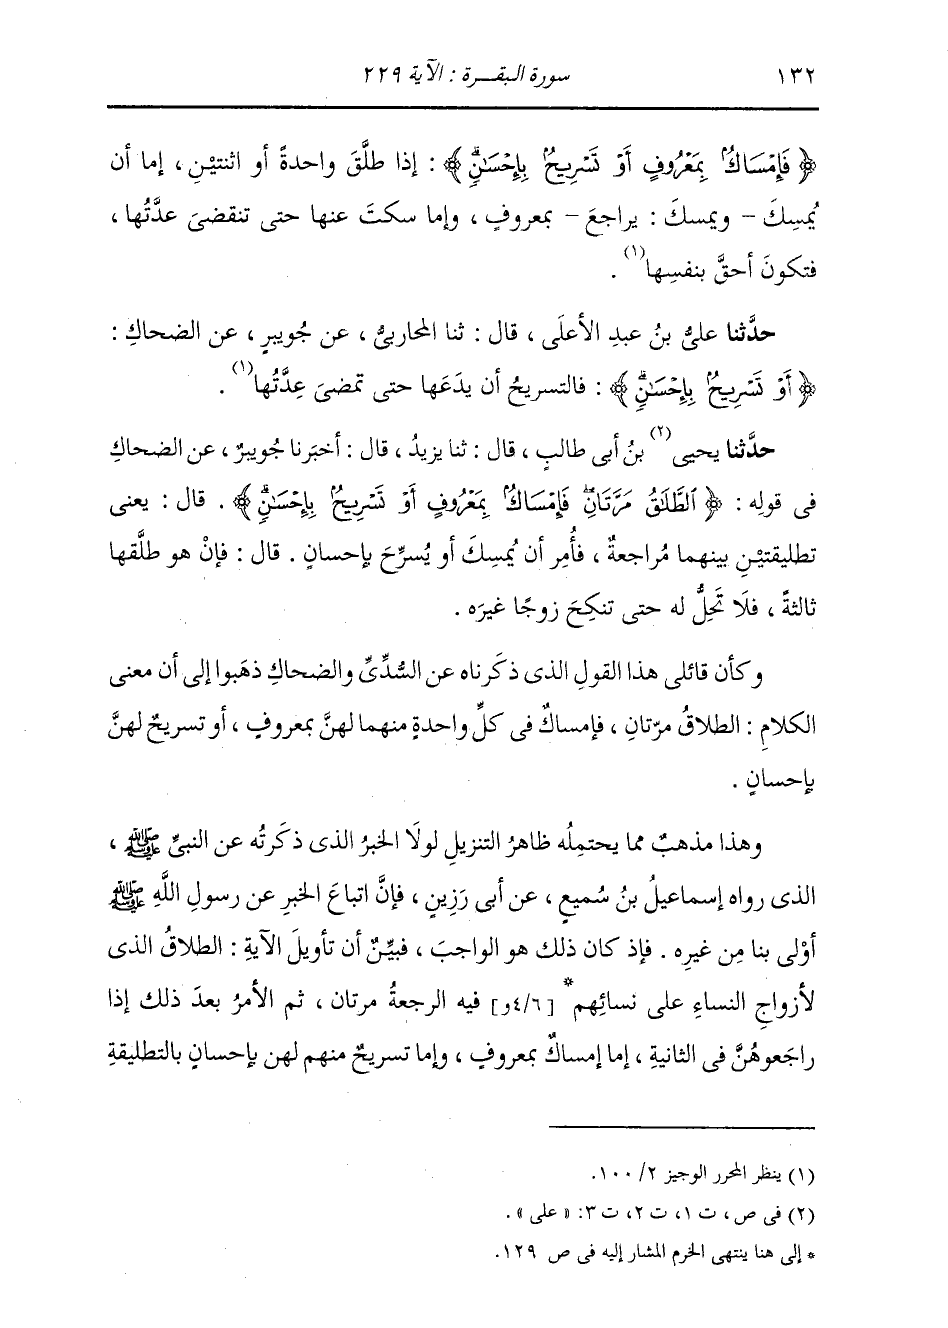 ١٣٢ سورة البقرة : الآية ٢٢٩
﴿ فَإِمْسَاكٌ بِمَعْرُوفٍ أَوْ تَسْرِيحٌ بِإِحْسَٰنٍ ﴾ : إذا طلَّقَ واحدةً أو اثنتيْنِ ، إما أن
يُمسِكَ - ويمسكَ : يراجعَ - بمعروفٍ ، وإما سكتَ عنها حتى تنقضىَ عدَّتُها ،
فتكونَ أحقَّ بنفسِها(١) .
حدَّثنا علىُّ بنُ عبدِ الأعلَى ، قال : ثنا المحاربىُّ ، عن جُويبرٍ ، عن الضحاكِ :
﴿ أَوْ تَسْرِيحٌ بِإِحْسَٰنٍ ﴾ : فالتسريحُ أن يدَعَها حتى تمضىَ عِدَّتُها(١) .
حدَّثنا يحيى(٢) بنُ أبى طالبٍ ، قال : ثنا يزيدُ ، قال : أخبَرنا جُويبرٌ ، عن الضحاكِ
فى قولِه : ﴿ ٱلطَّلَٰقُ مَرَّتَانِ فَإِمْسَاكٌ بِمَعْرُوفٍ أَوْ تَسْرِيحٌ بِإِحْسَٰنٍ ﴾ . قال : يعنى
تطليقتيْنِ بينهما مُراجعةٌ ، فأُمِر أن يُمسِكَ أو يُسرِّحَ بإحسانٍ . قال : فإنْ هو طلَّقها
ثالثةً ، فلَا تَحِلُّ له حتى تنكِحَ زوجًا غيرَه .
وكأن قائلى هذا القولِ الذى ذكَرناه عن السُّدِّىِّ والضحاكِ ذهَبوا إلى أن معنى
الكلامِ : الطلاقُ مرّتانِ ، فإمساكٌ فى كلِّ واحدةٍ منهما لهنَّ بمعروفٍ ، أو تسريحٌ لهنَّ
بإحسانٍ .
وهذا مذهبٌ مما يحتمِلُه ظاهرُ التنزيلِ لولَا الخبرُ الذى ذكَرتُه عن النبىِّ ﷺ ،
الذى رواه إسماعيلُ بنُ سُميعٍ ، عن أبى رَزِينٍ ، فإنَّ اتباعَ الخبرِ عن رسولِ اللَّهِ ﷺ
أوْلى بنا مِن غيرِه . فإذ كان ذلك هو الواجبَ ، فبيِّنٌ أن تأويلَ الآيةِ : الطلاقُ الذى
لأزواجِ النساءِ على نسائِهم* [٤/٦و] فيه الرجعةُ مرتان ، ثم الأمرُ بعدَ ذلك إذا
راجَعوهُنَّ فى الثانيةِ ، إما إمساكٌ بمعروفٍ ، وإما تسريحٌ منهم لهن بإحسانٍ بالتطليقةِ
(١) ينظر المحرر الوجيز ٢/ ١٠٠.
(٢) فى ص، ت ١، ت ٢، ت ٣: « على » .
* إلى هنا ينتهى الخرم المشار إليه فى ص ١٢٩.